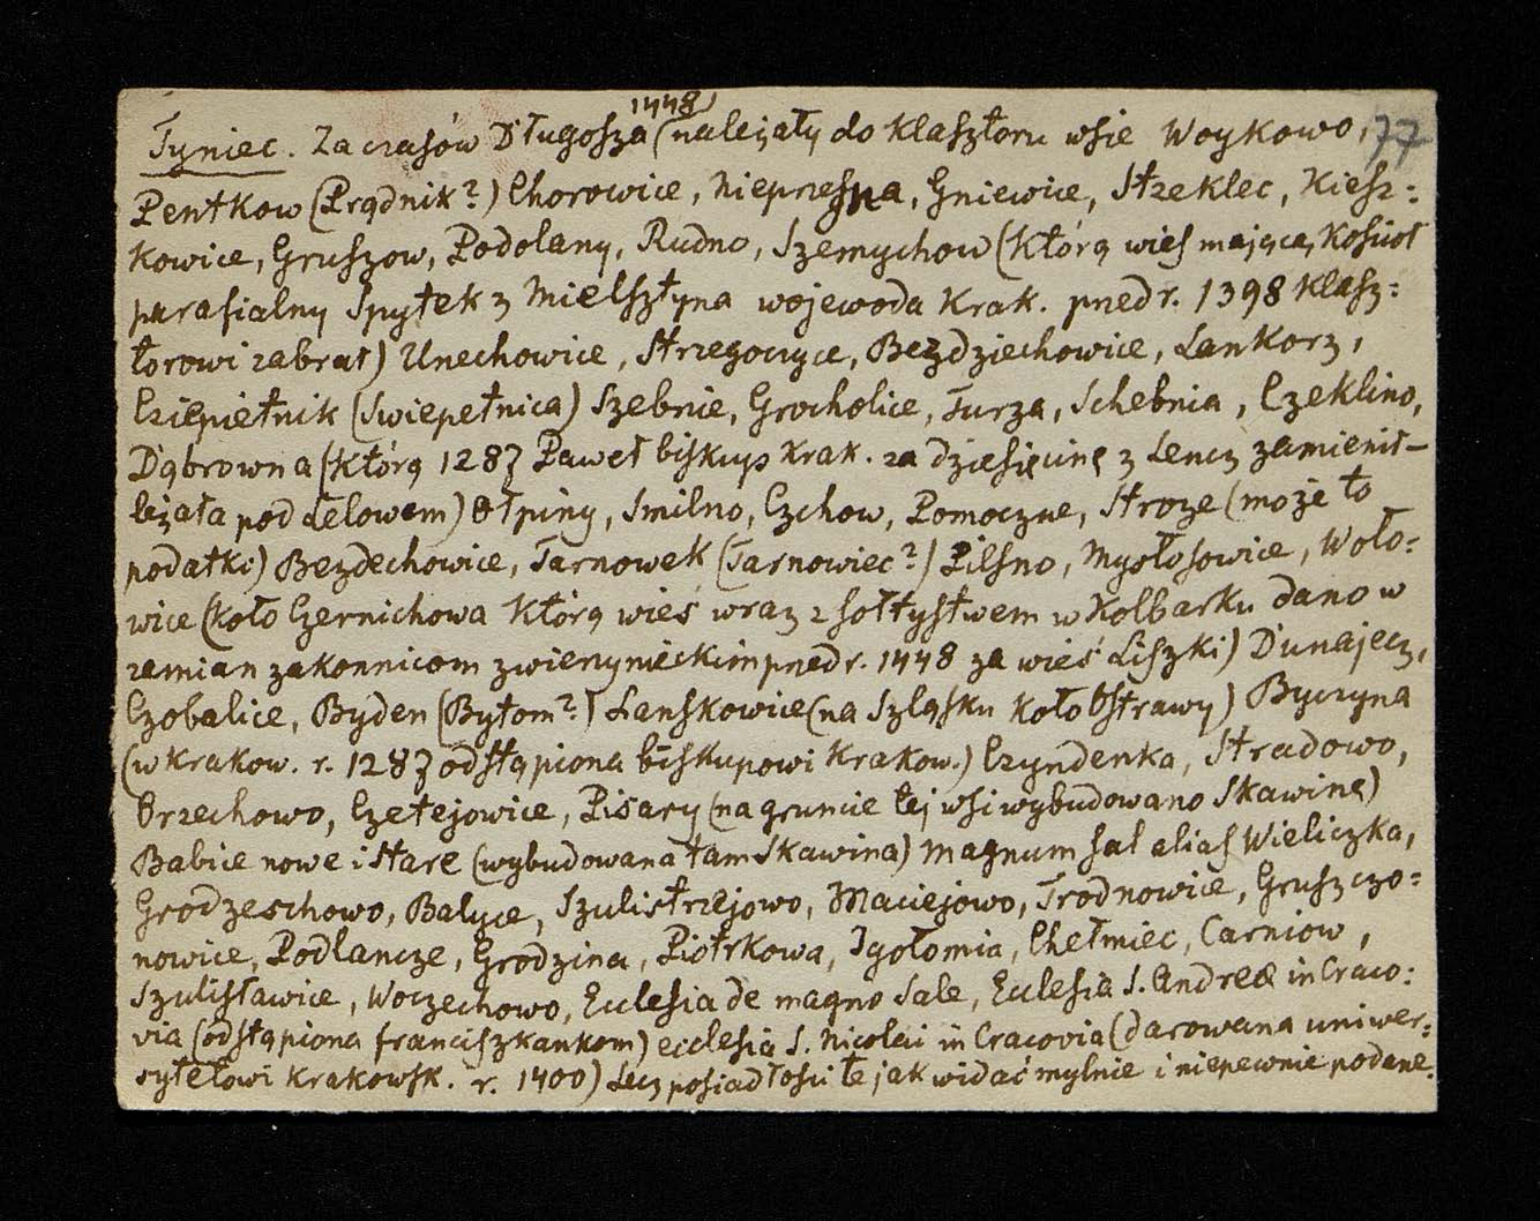 Tyniec. Za czasów Długosza (1448) należały do klasztoru wsie Woykowo, 77
Pentkow (Prądnik?) Chorowice, Nieprzesna, Gniewice, Strzeklec, Kiesz:
kowice, Gruszow, Podolany, Rudno, Szemychow (którą wieś mającą kościoł
parafialny Spytek z Mielsztyna wojewoda Krak. przed r. 1398 klasz:
torowi zabrał) Unechowice, Strzegoczyce, Bezdziechowice, Lankorz,
Cziepietnik (Swiepetnica) Szebnie, Grocholice, Turza, Schebnia, Czeklino,
Dąbrowna (którą 1287 Paweł biskup Krak. za dziesięcinę z Lencz zamienił –
leżała pod Lelowem) Ołpiny, Smilno, Czchow, Pomoczne, Stroze (może to
podatki) Bezdechowice, Tarnowek (Tarnowiec?) Pilsno, Mysłosowice, Woło:
wice (koło Czernichowa którą wieś wraz z sołtystwem w Kolbarku dano w
zamian zakonnicom zwierzynieckim przed r. 1448 za wieś Liszki) Dunajecz,
Czobalice, Byden (Bytom?) Lanskowice (na Szląsku koło Ostrawy) Byczyna
(w Krakow. r. 1287 odstąpiona biskupowi Krakow.) Czyndenka, Stradowo,
Orzechowo, Czetejowice, Pisary (na gruncie tej wsi wybudowano Skawinę)
Babice nowe i stare (wybudowana tam Skawina) magnum sal alias Wieliczka,
Grodzeschowo, Balyce, Szulistrzejowo, Maciejowo, Trodnowice, Gruszczo:
nowice, Podlancze, Grodzina, Piotrkowa, Igołomia, Chełmiec, Carniow,
Szulisławice, Woczechowo, Ecclesia de magno Sale, Ecclesia S. Andreæ in Craco:
via (odstąpiona franciszkankom) ecclesia S. Nicolai in Cracovia (darowana uniwer:
sytetowi krakowsk. r. 1400) Lecz posiadłości te jak widać mylnie i niepewnie podane.